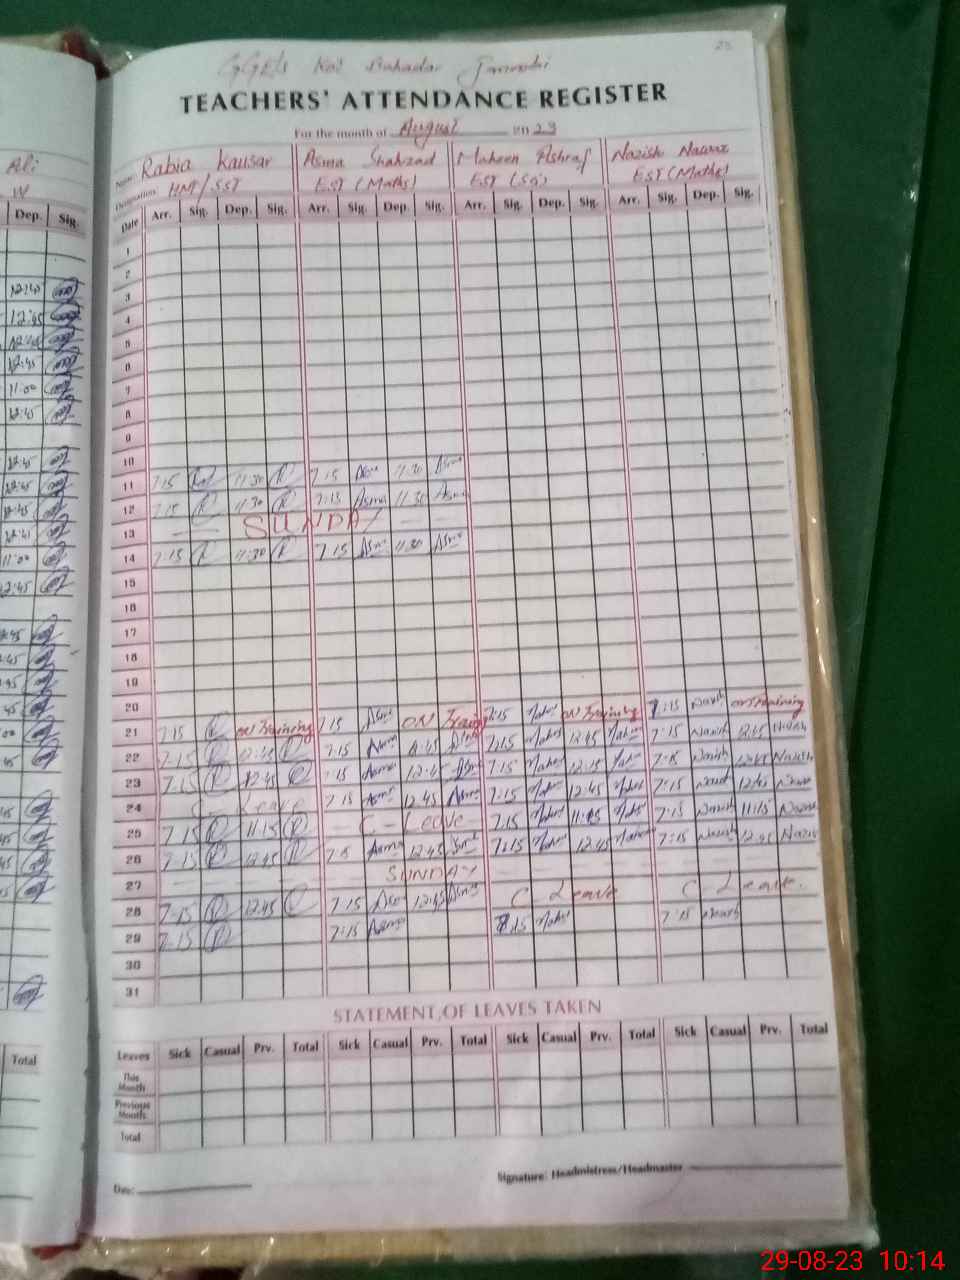 23
Kot Bahadar
TEACHERS' ATTENDANCE REGISTER
For the month of August 2023
Name: Rabia Kausar Asma Shahzad Maheen Ashraf Nazish Nawaz
Designation: HMT/SST EST (Maths) EST (SG) EST (Maths)
Date Arr. Sig. Dep. Sig. Arr. Sig. Dep. Sig. Arr. Sig. Dep. Sig. Arr. Sig. Dep. Sig.
1
2
3
4
5
6
7
8
9
10
11 7:15 R 11:30 R 7:15 Asma 11:30 Asma
12 7:15 R 11:30 R 7:15 Asma 11:30 Asma
13 SUNDAY
14 7:15 R 11:30 R 7:15 Asma 11:30 Asma
15
16
17
18
19
20
21 7:15 R on Training 7:15 Asma ON Training 7:15 Mahen on Training 7:15 Nazish on Training
22 7:15 R 12:45 R 7:15 Asma 12:45 7:15 Mahen 12:45 Mahen 7:15 Nazish 12:45 Nazish
23 7:15 R 12:45 R 7:15 Asma 12:45 Asma 7:15 Mahen 7:15 Nazish 12:45 Nazish
24 C - Leave 7:15 Asma 12:45 Asma 7:15 Mahen 12:45 Mahen 7:15 Nazish 12:45 Nazish
25 7:15 R 11:15 R C - Leave 7:15 Mahen 11:15 Mahen 7:15 Nazish 11:15 Nazish
26 7:15 R 12:45 R 7:15 Asma 12:45 7:15 Mahen 12:45 Mahen 7:15 Nazish 12:45 Nazish
27 SUNDAY
28 7:15 R 12:45 R 7:15 Asma 12:45 Asma C - Leave C - Leave.
29 7:15 R 7:15 Asma 7:15 Mahen 7:15 Nazish
30
31
STATEMENT OF LEAVES TAKEN
Leaves Sick Casual Prv. Total Sick Casual Prv. Total Sick Casual Prv. Total Sick Casual Prv. Total
This Month
Previous Month
Total
Date: Signature: Headmistress/Headmaster
Ali
W
Dep. Sig.
12:45
12:45
12:45
12:45
11:00
12:45
12:45
12:45
12:45
12:45
11:00
12:45
Total
29-08-23 10:14